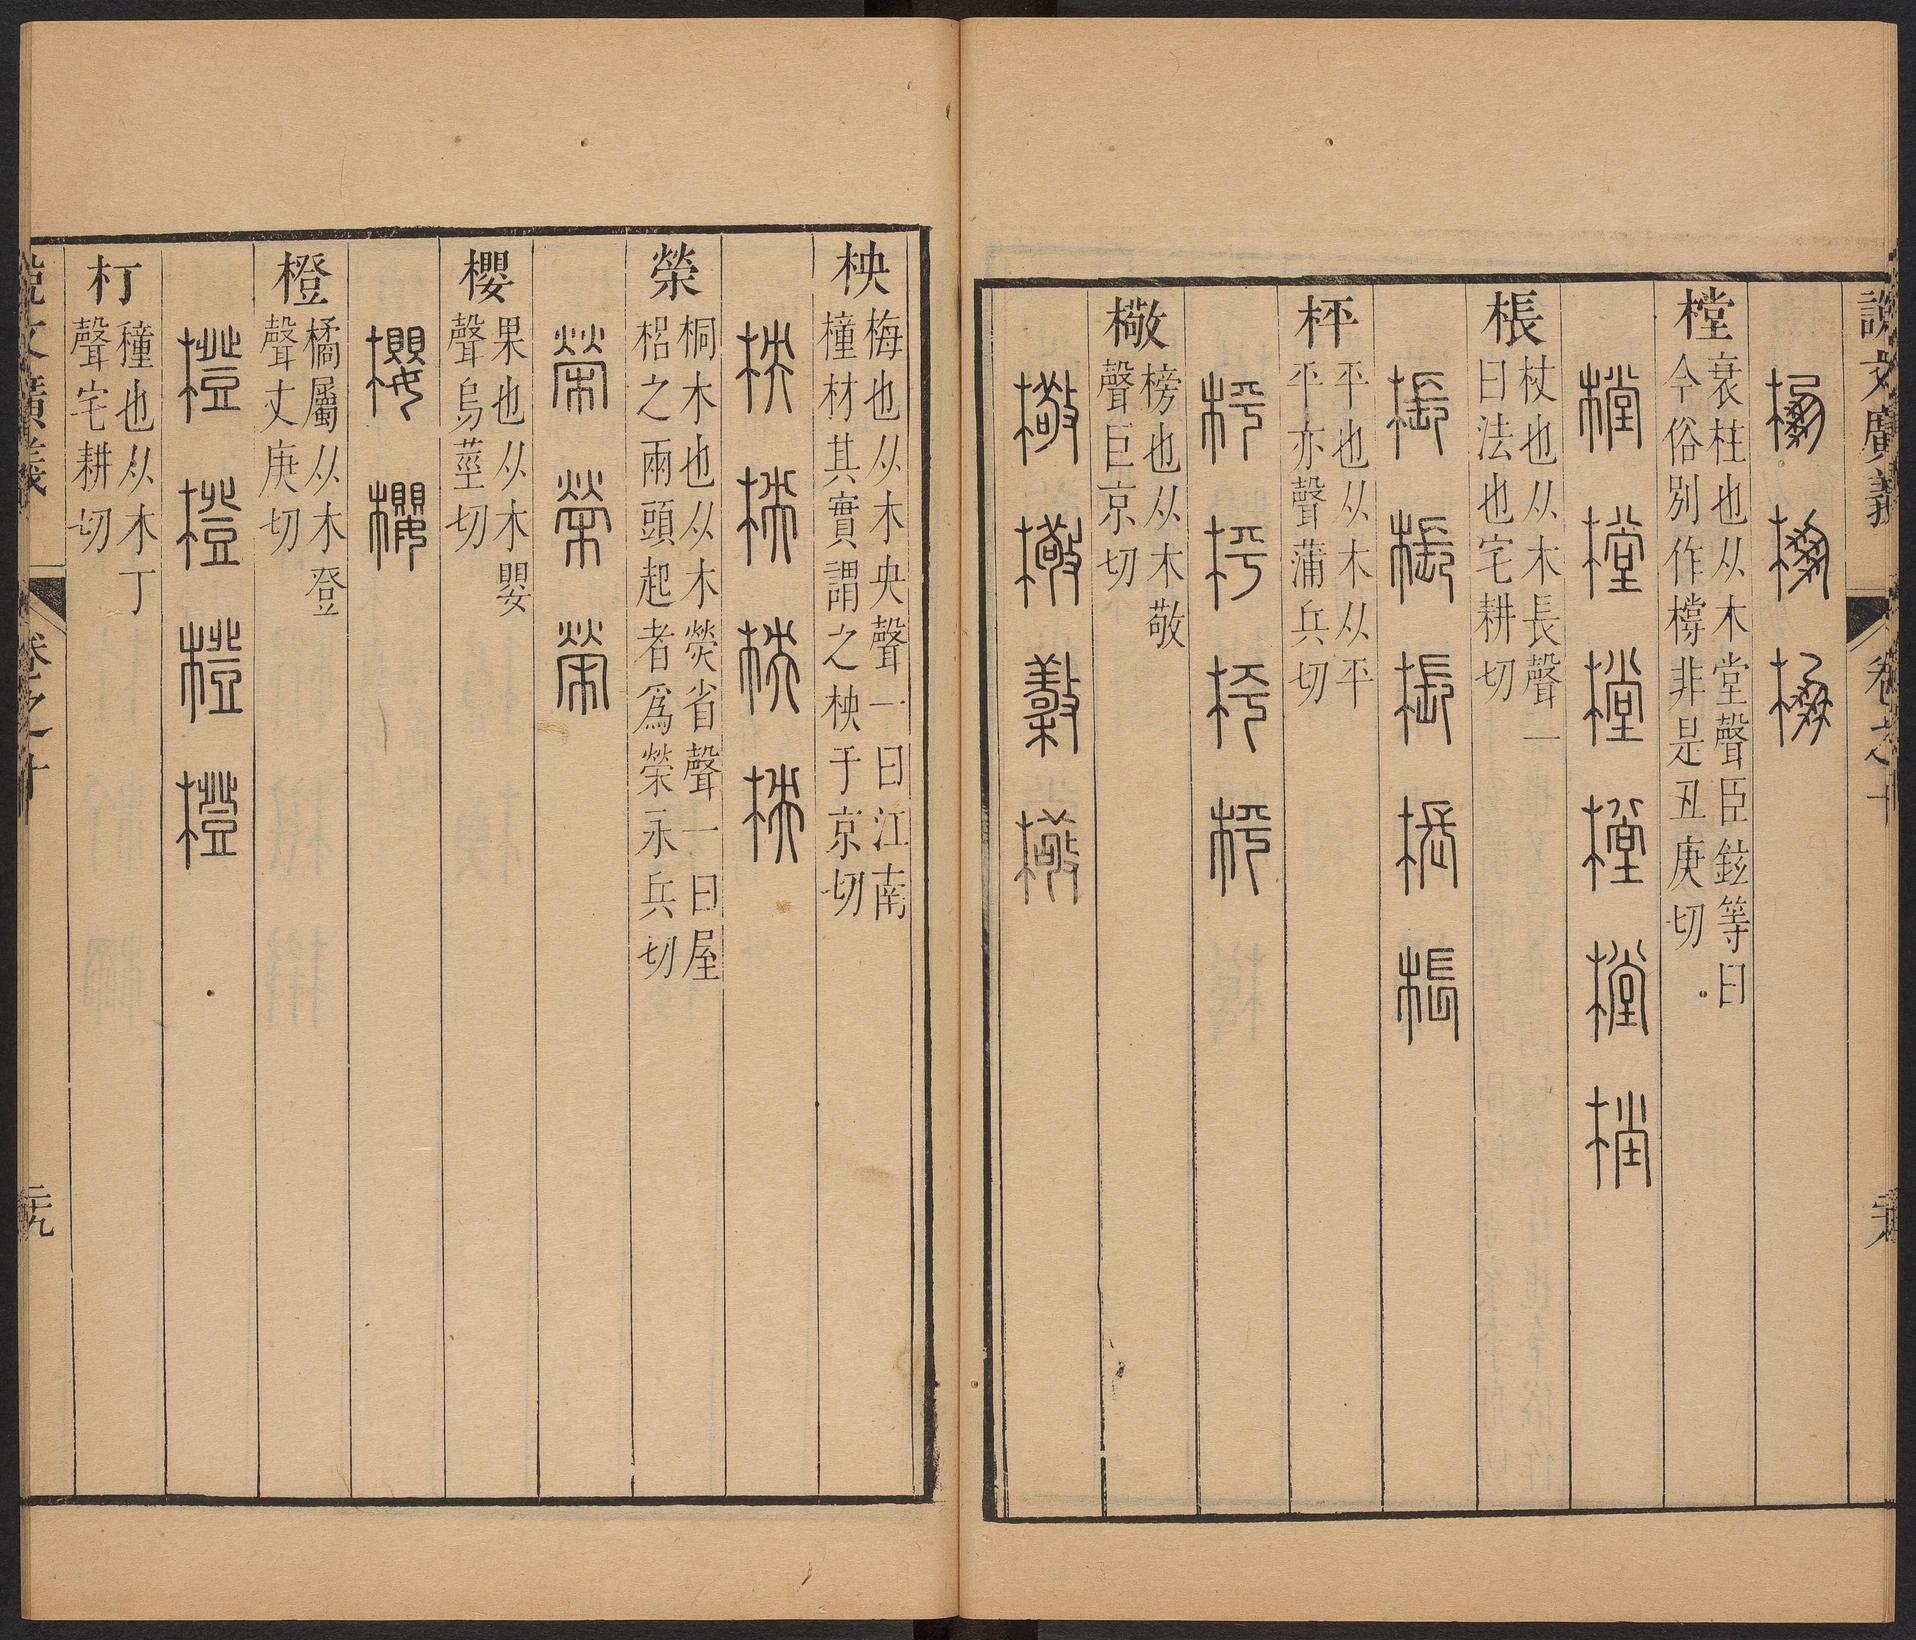 說文廣義
卷之十
樘
衺柱也从木堂聲臣鉉等曰
今俗別作橕非是丑庚切
樘樘樘樘樘樘
棖
杖也从木長聲一
曰法也宅耕切
棖棖棖棖棖
枰
平也从木从平
平亦聲蒲兵切
枰枰枰枰
檠
榜也从木敬
聲巨京切
檠檠檠檠
柍
梅也从木央聲一曰江南
橦材其實謂之柍于京切
柍柍柍柍
榮
桐木也从木熒省聲一曰屋
梠之兩頭起者爲榮永兵切
榮榮榮
櫻
果也从木嬰
聲烏莖切
櫻櫻
橙
橘屬从木登
聲丈庚切
橙橙橙橙
朾
橦也从木丁
聲宅耕切
說文廣義
卷之十
二十九